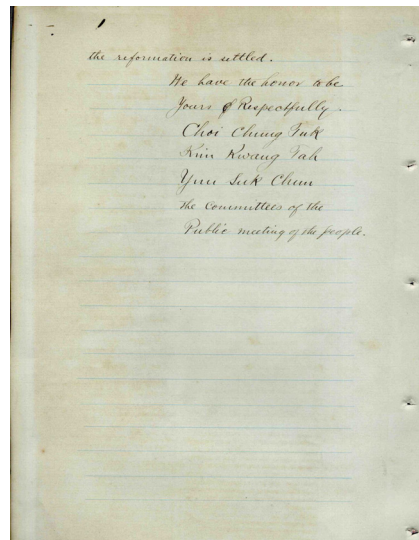 the reformation is settled.
We have the honor to be
Yours Respectfully.
Choi Chung Tuk
Kim Kwang Tah
Yun Suk Chun
the Committees of the
Public meeting of the people.